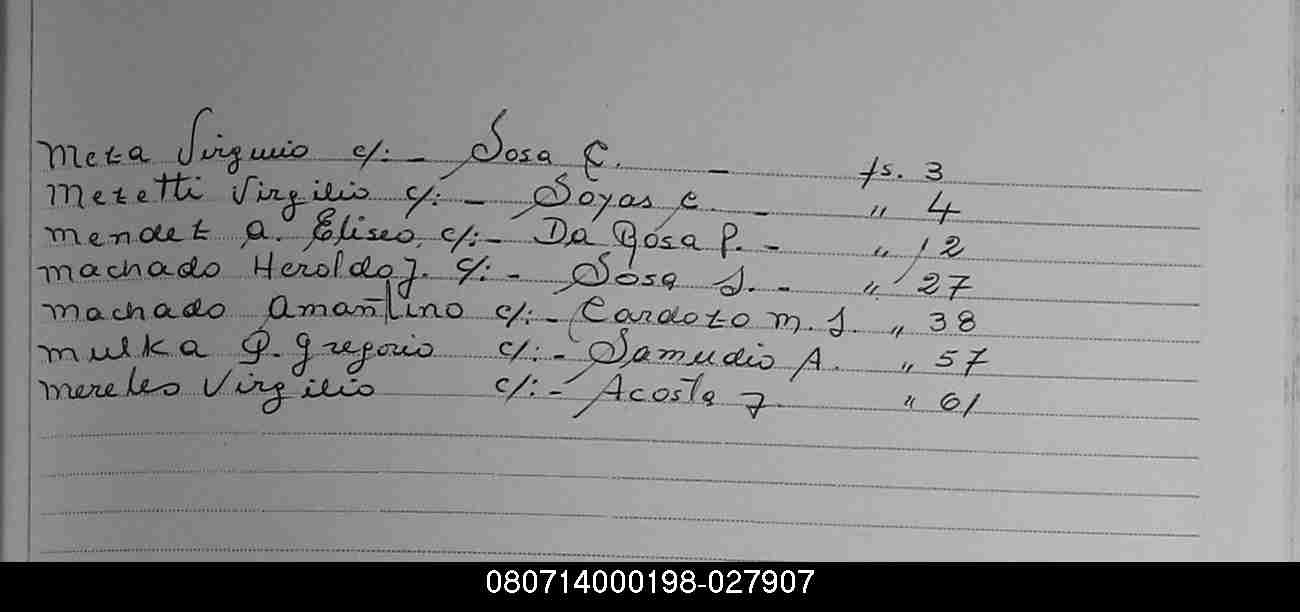 Meza Virginio c/:- Sosa C. - fs. 3
Mezetti Virgilio c/:- Soyas C. - " 4
Mendez A. Eliseo, c/:- Da Rosa P. - " 12
Machado Heroldo J. c/:- Sosa S. - " 27
Machado Amantino c/:- Cardozo M. S. " 38
Mulka P. Gregorio c/:- Samudio A. " 57
Mereles Virgilio c/:- Acosta J. " 61
080714000198-027907